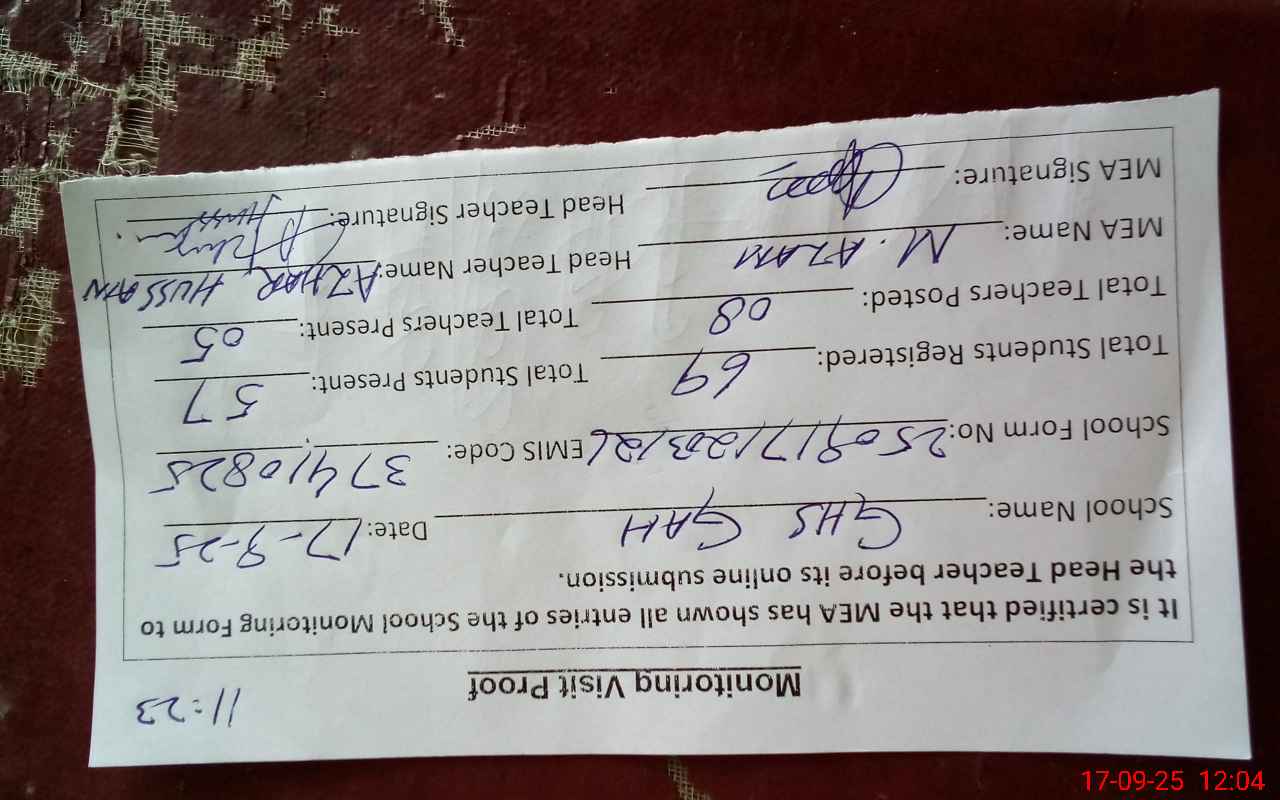 11:23
Monitoring Visit Proof
It is certified that the MEA has shown all entries of the School Monitoring Form to
the Head Teacher before its online submission.
School Name: GHS GAH Date: 17-9-25
School Form No: 250917/203/26 EMIS Code: 37410825
Total Students Registered: 69 Total Students Present: 57
Total Teachers Posted: 08 Total Teachers Present: 05
MEA Name: M. AZAM Head Teacher Name: AZHAR HUSSAIN
MEA Signature: Head Teacher Signature:
17-09-25 12:04